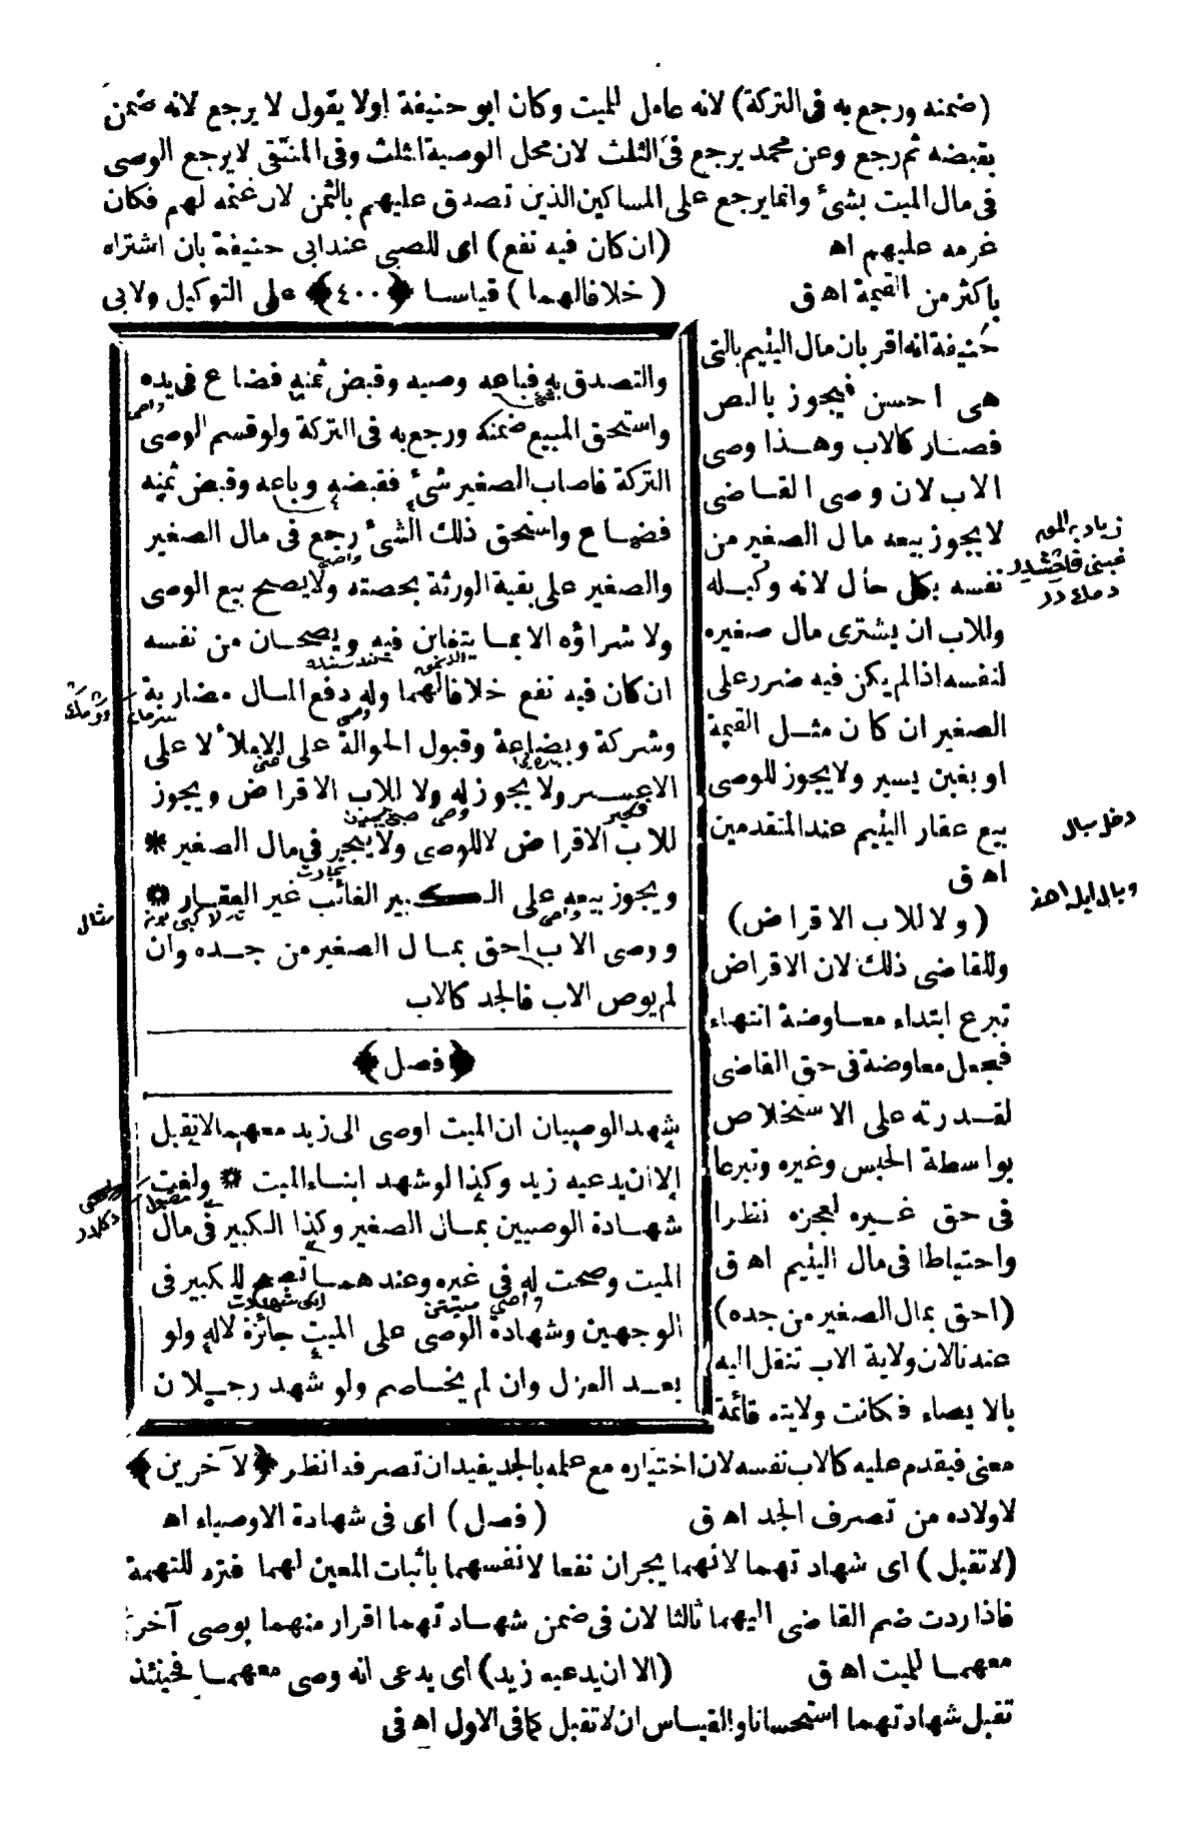 (ضمنه ورجع به فى التركة) لانه عامل للميت وكان ابو حنيفة اولا يقول لا يرجع لانه ضمن
بقبضه ثم رجع وعن محمد يرجع فى الثلث لان محل الوصية الثلث وفى المنتقى لا يرجع الوصى
فى مال الميت بشئ وانما يرجع على المساكين الذين تصدق عليهم بالثمن لان غنمه لهم فكان
غرمه عليهم اه (ان كان فيه نفع) اى للصبى عند ابى حنيفة بان اشتراه
باكثر من القيمة اه ق (خلافا لهما) قياسا ﴿٤٠٠﴾ على التوكيل ولابى
حنيفة انه اقربان مال اليتيم بالتى
هى احسن فيجوز بالنص
فصار كالاب وهذا وصى
الاب لان وصى القاضى
لا يجوز بيعه مال الصغير من
نفسه بكل حال لانه وكيله
وللاب ان يشترى مال صغيره
لنفسه اذا لم يكن فيه ضرر على
الصغير ان كان مثل القيمة
او بغبن يسير ولا يجوز للوصى
بيع عقار اليتيم عند المتقدمين
اه ق
(ولا للاب الاقراض)
وللقاضى ذلك لان الاقراض
تبرع ابتداء معاوضة انتهاء
فجعل معاوضة فى حق القاضى
لقدرته على الاستخلاص
بواسطة الحبس وغيره وتبرعا
فى حق غيره لعجزه نظرا
واحتياطا فى مال اليتيم اه ق
(احق بمال الصغير من جده)
عندنا لان ولاية الاب تنقل اليه
بالايصاء فكانت ولايته قائمة
والتصدق به فباعه وصيه وقبض ثمنه فضاع فى يده
واستحق المبيع ضمنه ورجع به فى التركة ولو قسم الوصى
التركة فاصاب الصغير شئ فقبضه وباعه وقبض ثمنه
فضاع واستحق ذلك الشئ رجع فى مال الصغير
والصغير على بقية الورثة بحصته ولا يصح بيع الوصى
ولا شراؤه الا بما يتغابن فيه ويصحان من نفسه
ان كان فيه نفع خلافا لهما وله دفع المال مضاربة
وشركة وبضاعة وقبول الحوالة على الاملأ لا على
الاعسر ولا يجوز له ولا للاب الاقراض ويجوز
للاب الاقراض لا للوصى ولا يتجر فى مال الصغير *
ويجوز بيعه على الكبير الغائب غير العقار *
ووصى الاب احق بمال الصغير من جده وان
لم يوص الاب فالجد كالاب
﴿فصل﴾
شهد الوصيان ان الميت اوصى الى زيد معهما لا تقبل
الا ان يدعيه زيد وكذا لو شهد ابنا الميت * ولغت
شهادة الوصيين بمال الصغير وكذا الكبير فى مال
الميت وصحت له فى غيره وعندهما تصح للكبير فى
الوجهين وشهادة الوصى على الميت جائزة لا له ولو
بعد العزل وان لم يخاصم ولو شهد رجلان
معنى فيقدم عليه كالاب نفسه لان اختياره مع علمه بالجد يفيد ان تصرفه انظر ﴿لآخرين﴾
لاولاده من تصرف الجد اه ق (فصل) اى فى شهادة الاوصياء اه
(لا تقبل) اى شهادتهما لانهما يجران نفعا لانفسهما باثبات المعين لهما فترد للتهمة
فاذا ردت ضم القاضى اليهما ثالثا لان فى ضمن شهادتهما اقرار منهما بوصى آخر
معهما للميت اه ق (الا ان يدعيه زيد) اى يدعى انه وصى معهما فحينئذ
تقبل شهادتهما استحسانا والقياس ان لا تقبل كما فى الاول اه فى